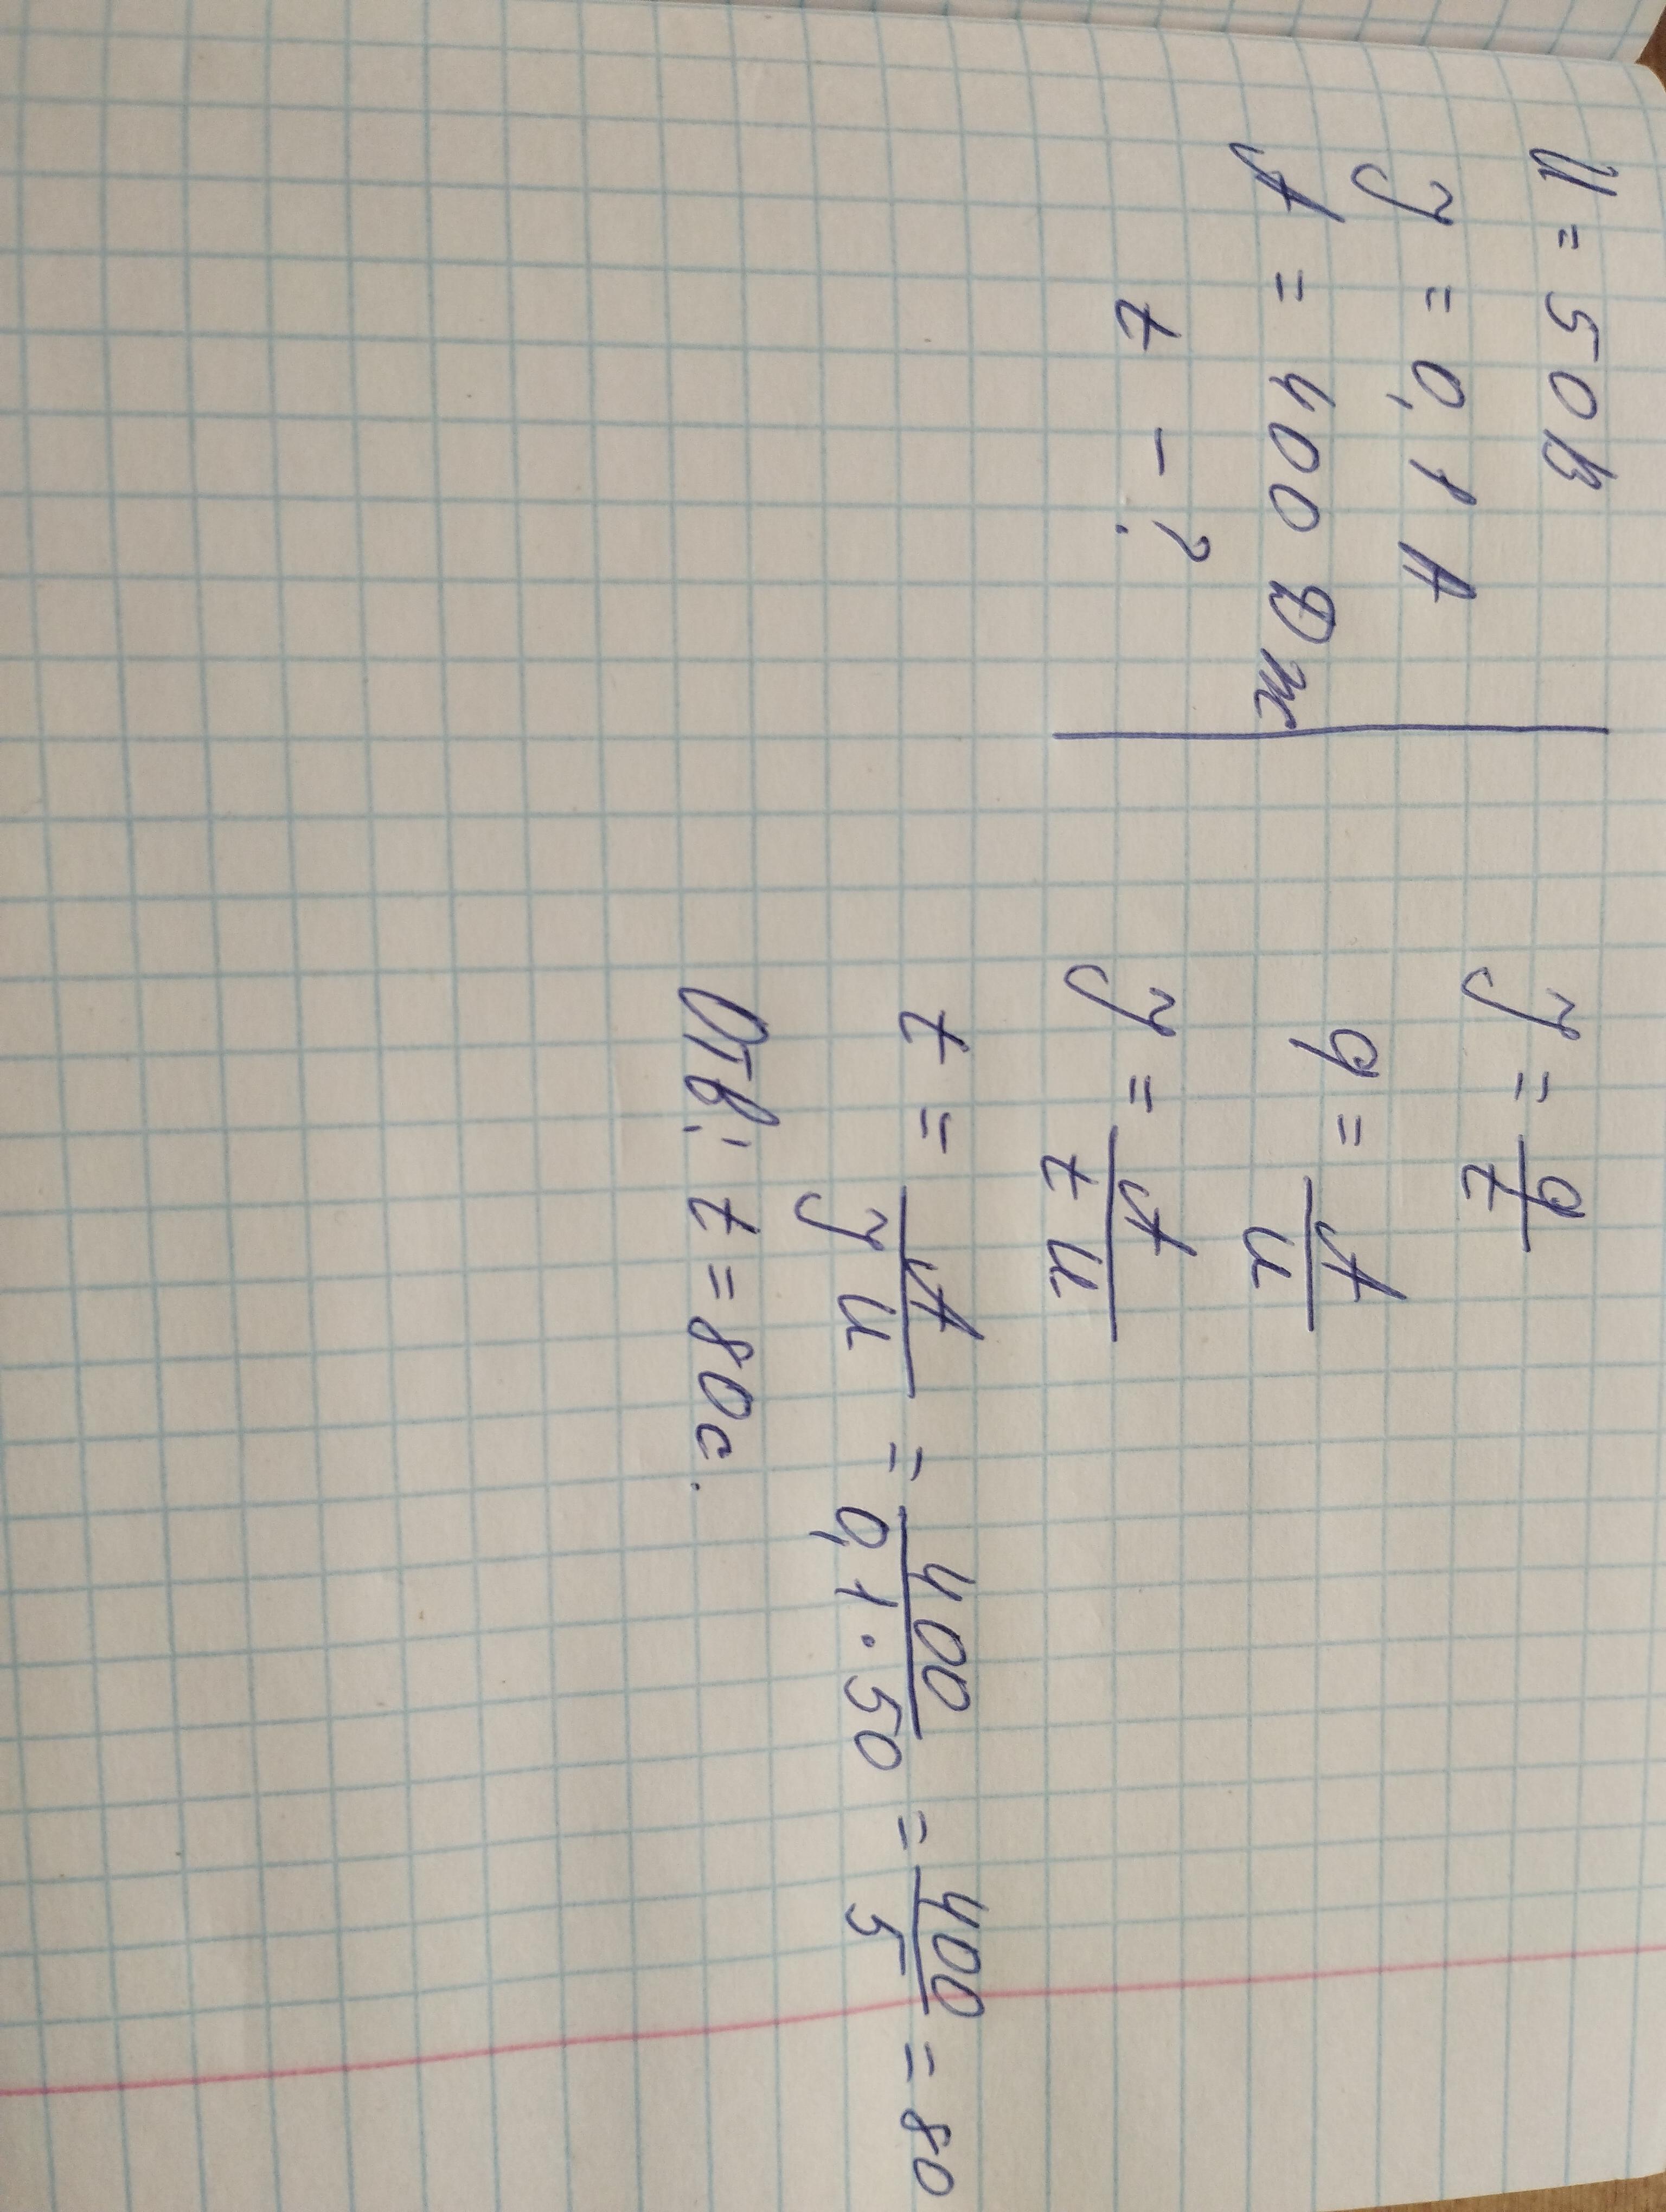 U = 50 В
I = 0,1 А
A = 400 Дж
t - ?
I = q/t
q = A/U
I = A/(t U)
t = A/(I U) = 400/(0,1 · 50) = 400/5 = 80
Отв: t = 80 с.